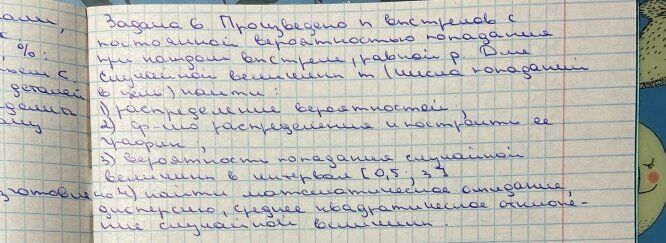 Задача 6 Произведено n выстрелов с
постоянной вероятностью попадания
при каждом выстреле, равной p. Для
случайной величины m (числа попаданий
в цель) найти:
1) распределение вероятностей;
2) ф-цию распределения и построить ее
график;
3) вероятность попадания случайной
величины в интервал [0,5; 3]
4) найти математическое ожидание,
дисперсию, среднее квадратическое отклоне-
ние случайной величины.
%:
деталей